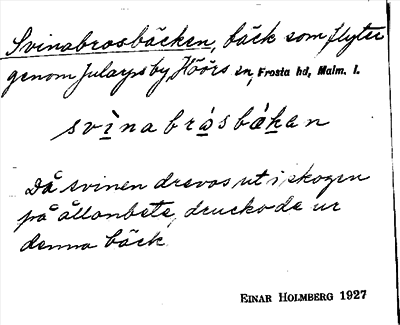 Svinabrosbäcken, bäck som flyter
genom Jularps by, Höörs sn, Frosta hd, Malm. l.
svìnabrå̀sbǽkan
Då svinen drevos ut i skogen
på ållonbete, drucko de ur
denna bäck.
EINAR HOLMBERG 1927